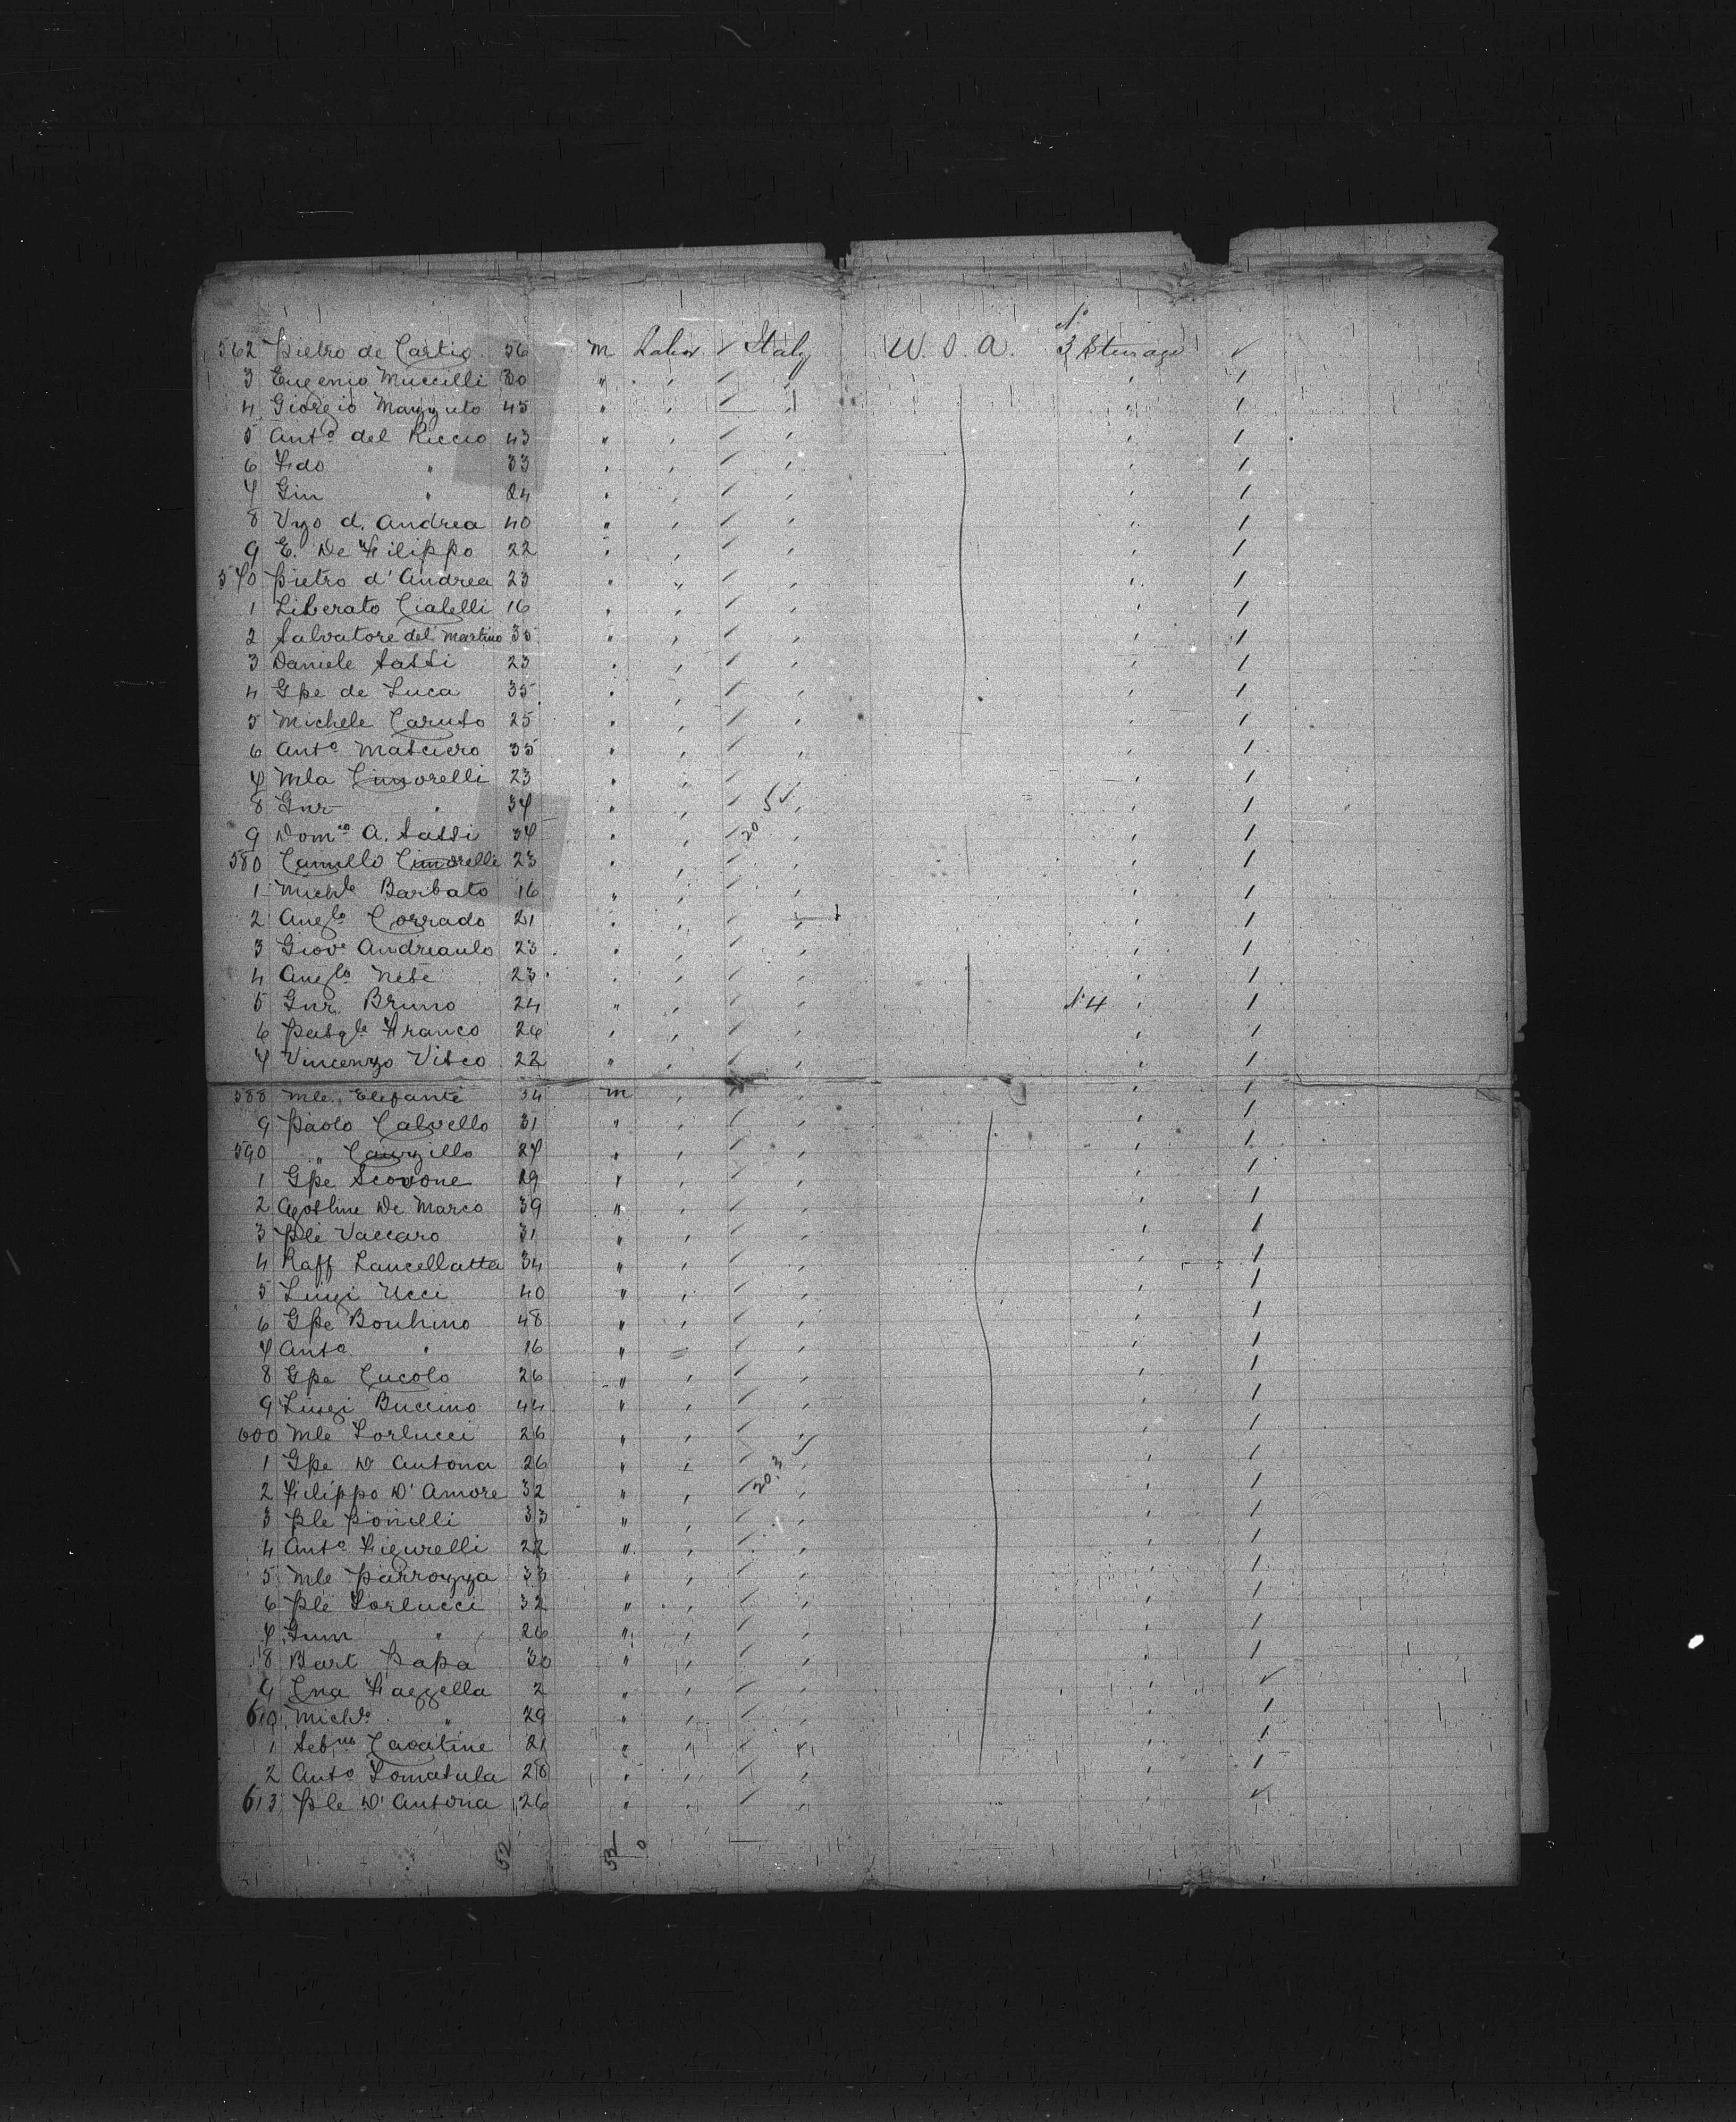 562 Pietro de Cartis 56 m Labor / Italy U. S. A. No 3 Steerage ✓
3 Eugenio Muccilli 30 " , / , , /
4 Giorgio Mazzuto 45 " , / , , /
5 Anto del Riccio 43 " , / , , /
6 Fdo " 33 " , / , , /
7 Gin " 24 " , / , , /
8 Vzo d. Andrea 40 " , / , , /
9 E. De Filippo 22 " , / , , /
570 Pietro d'Andrea 23 " , / , , /
1 Liberato Cialelli 16 " , / , , /
2 Salvatore del Martino 35 " , / , , /
3 Daniele Sassi 23 " , / , , /
4 Gpe de Luca 35 " , / , , /
5 Michele Caruso 25 " , / , , /
6 Anto Masciero 35 " , / , , /
7 Mla Cimorelli 23 " , / , , /
8 Gnr " 37 " , / , , /
9 Domco A. Sassi 37 " , / 20 , , /
580 Camillo Cimorelli 23 " , / , , /
1 Michle Barbato 16 " , / , , /
2 Anglo Corrado 21 " , / , , /
3 Giove Andreaulo 23 " , / , , /
4 Anglo Nese 23 " , / , , /
5 Gnr Bruno 24 " , / , No 4 , /
6 Pasqle Franco 26 " , / , , /
7 Vincenzo Visco 22 " , / , , /
588 Mle Elefante 34 m , / , , /
9 Paolo Calvello 31 " , / , , /
590 " Cauzillo 27 " , / , , /
1 Gpe Scovone 29 " , / , , /
2 Agostine De Marco 39 " , / , , /
3 Ple Vaccaro 31 " , / , , /
4 Raff Lancellatta 34 " , / , , /
5 Luigi Ucci 40 " , / , , /
6 Gpe Bonhino 48 " , / , , /
7 Anto " 16 " , / , , /
8 Gpe Cucolo 26 " , / , , /
9 Luigi Buccino 44 " , / , , /
600 Mle Lorlucci 26 " , / , , /
1 Gpe D Antona 26 " , / , , /
2 Filippo D'Amore 32 " , / 20.3 , , /
3 Ple Ponelli 33 " , / , , /
4 Anto Figurelli 22 " , / , , /
5 Mle Parrozza 33 " , / , , /
6 Ple Lorlucci 32 " , / , , /
7 " 26 " , / , , /
8 Bart Papa 30 " , / , , /
9 Cna Fazzella 2 " , / , , ✓
610 Michle " 29 " , / , , /
1 Sebno Cavatine 21 " , / , , /
2 Anto Lomasula 28 " , / , , /
613 Ple D'Antona 26 " , / , , ✓
52 52 0